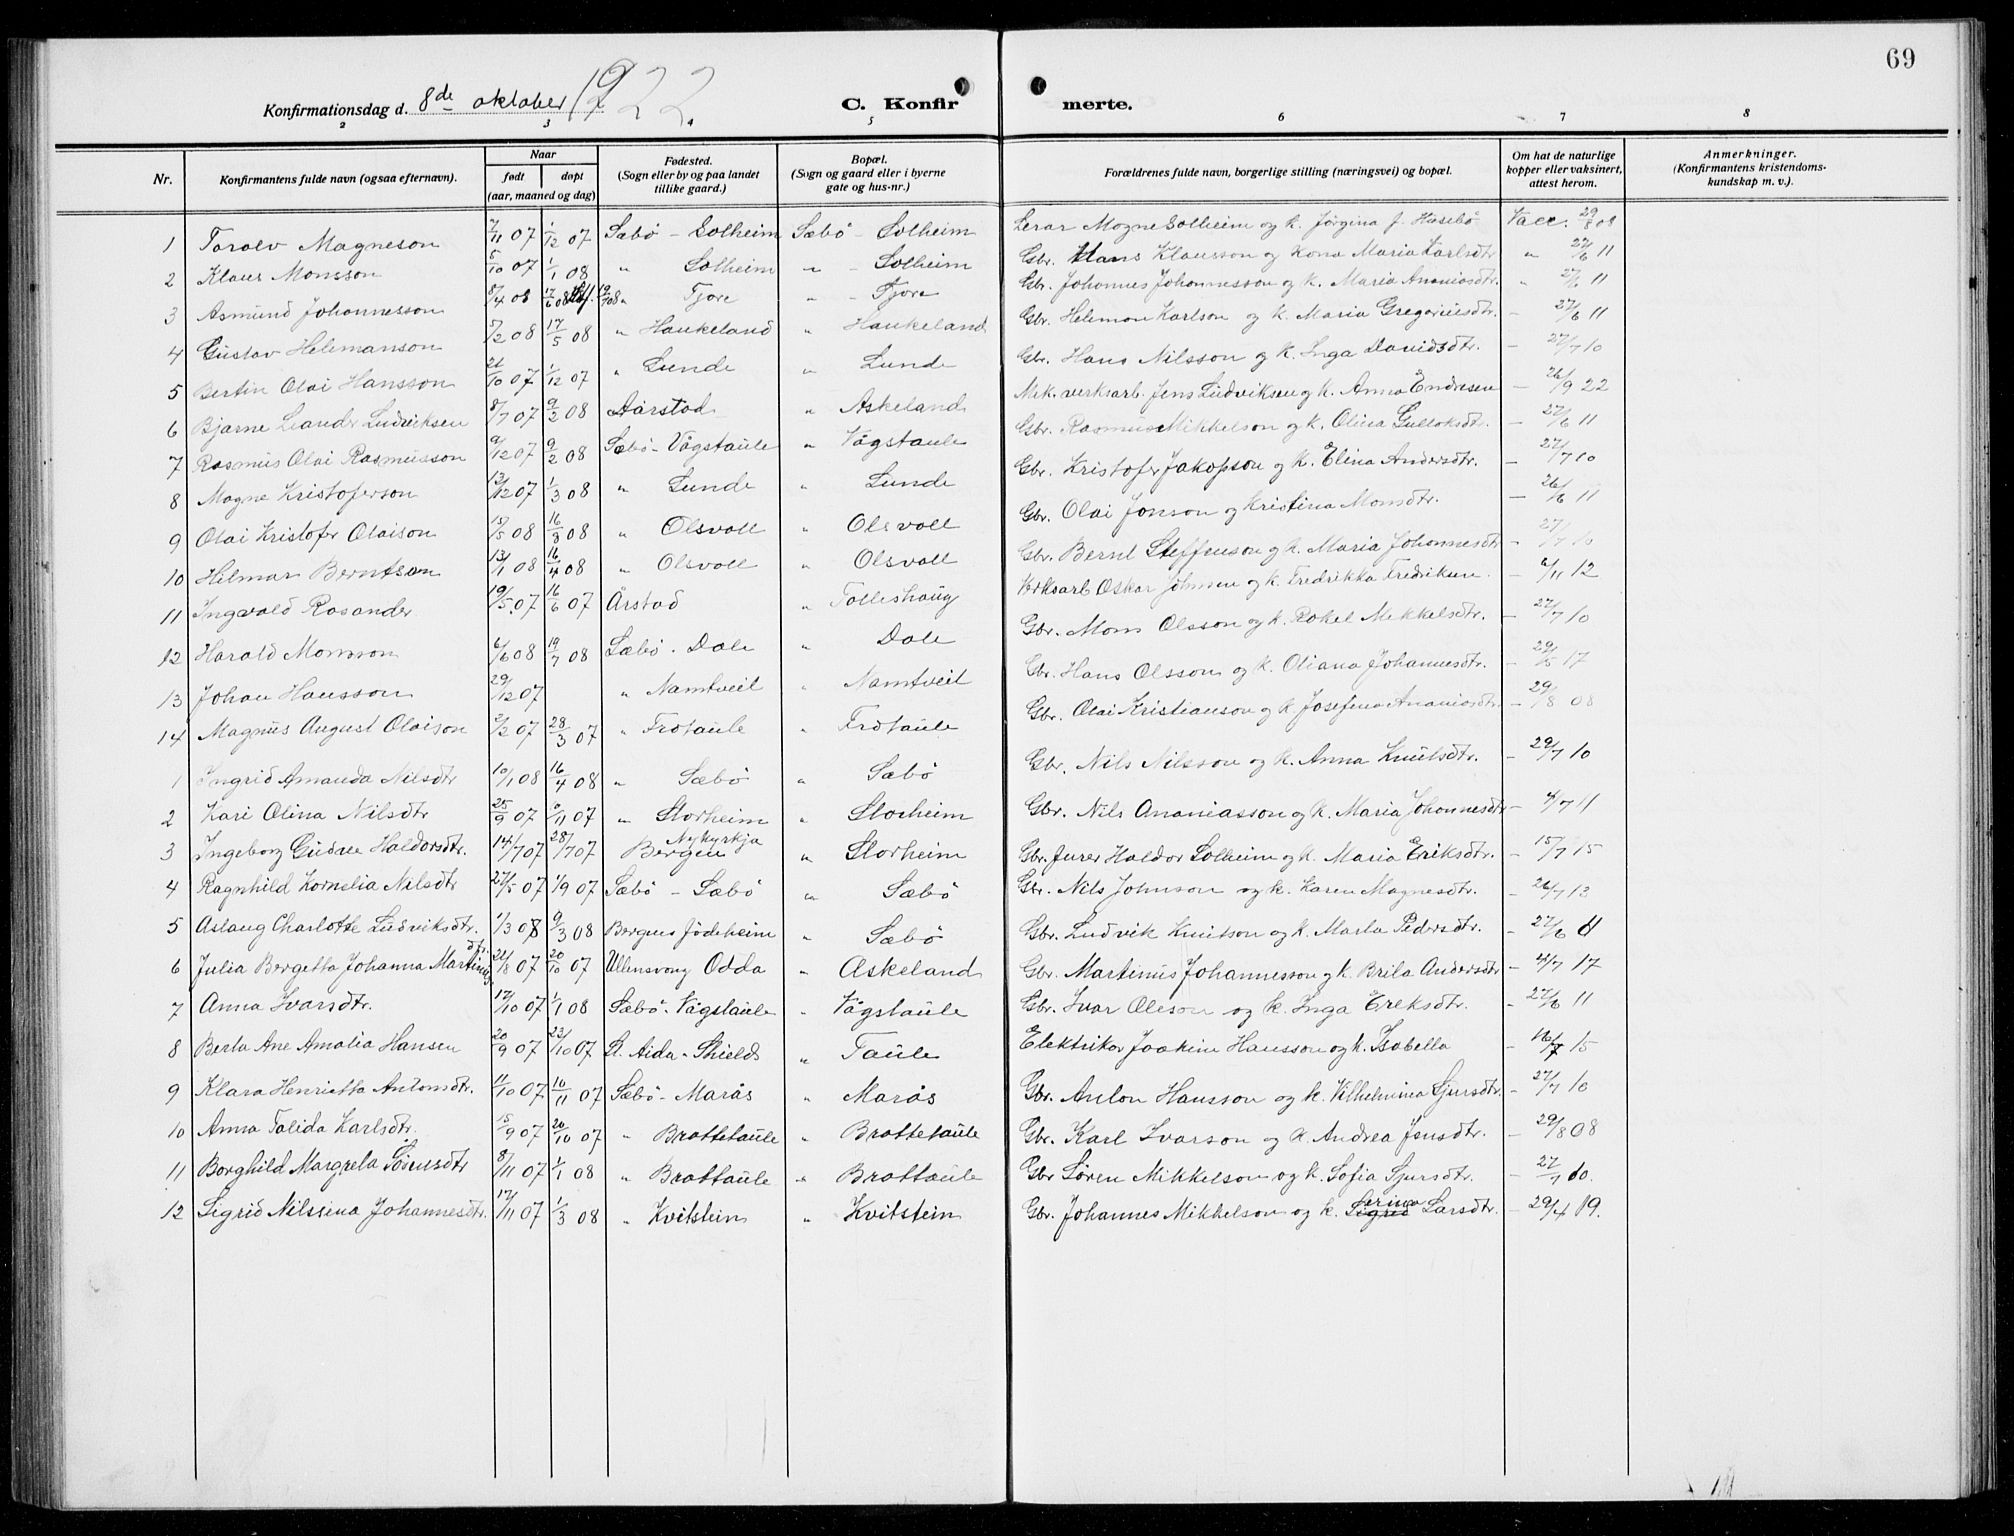 69
Konfirmationsdag d. 8de oktober 1922
C. Konfirmerte.
2 3 4 5 6 7 8
Nr. Konfirmantens fulde navn (ogsaa efternavn). Naar født døpt (aar, maaned og dag) Fødested. (Sogn eller by og paa landet tillike gaard.) Bopæl. (Sogn og gaard eller i byerne gate og hus-nr.) Forældrenes fulde navn, borgerlige stilling (næringsvei) og bopæl. Om hat de naturlige kopper eller vaksinert, attest herom. Anmerkninger. (Konfirmantens kristendomskundskap m. v.).
1 Torolv Magneson 7/11 07 1/12 07 Sæbö - Solheim Sæbö - Solheim Lerar Mogne Solheim og k. Jørgina f. Husebö Vacc. 29/8 08
2 Klaus Monsson 5/10 07 1/1 08 " Solheim " - Solheim Gbr. Mans Klausson og Kona Maria Karlsdtr " 27/6 11
3 Asmund Johannesson 8/4 08 17/6 08 19/7 08 " Tjore " - Tjore Gbr. Johannes Johannesson og k. Maria Ananiasdtr " 27/6 11
4 Gustav Helimanson 5/2 08 17/5 08 " Haukeland " Haukeland Gbr. Heliman Karlson og k. Maria Gregoriusdtr. - 27/6 11
5 Bertin Olai Hansson 21/10 07 1/12 07 " Lunde " Lunde Gbr. Hans Nilsson og k. Inga Davidsdtr. - 27/7 10
6 Bjarne Leander Ludviksen 8/7 07 9/2 08 Aarstad " Askeland Mek. verksarb. Jens Ludviksen og k. Anna Endresen - 26/9 22
7 Rasmus Olai Rasmusson 9/12 07 9/2 08 Sæbö - Vågstaule " Vågstaule Gbr. Rasmus Mikkelson og k. Olina Gulloksdtr. - 27/6 11
8 Magne Kristoferson 13/12 07 1/3 08 " Lunde " Lunde Gbr. Kristofer Jakopson og k. Elina Andersdtr. - 27/7 10
9 Olai Kristofer Olaison 15/5 08 16/8 08 " Olsvoll " Olsvoll Gbr. Olai Jonson og Kristina Monsdtr. - 26/6 11
10 Hilmar Berntson 13/1 08 16/4 08 " Olsvoll " Olsvoll Gbr. Bernt Steffenson og k. Maria Johannesdtr - 27/7 10
11 Ingvald Rosander 19/5 07 16/6 07 Årstad " Tolleshaug Verksarb Oskar Johnsen og k. Fredrikka Fredriksen. - 6/11 12
12 Harald Monsson 6/6 08 19/7 08 Sæbö - Dale " Dale Gbr. Mons Olsson og k. Rakel Mekkelsdtr. - 27/7 10
13 Johan Hansson 29/12 07 " Namtveit " Namtveit Gbr. Hans Olsson og k. Oliana Johannesdtr. - 29/5 17
14 Magnus August Olaison 2/2 07 28/3 07 " Frotaule " Frotaule Gbr. Olai Kristianson og k Josefina Ananiasdtr - 29/8 08
1 Ingrid Amanda Nilsdtr 19/1 08 16/4 08 " Sæbö " Sæbö Gbr. Nils Nilsson og k. Anna Knutsdtr. - 29/7 10
2 Kari Olina Nilsdtr 25/9 07 6/11 07 " Storheim " Storheim Gbr. Nils Ananiasson og k. Maria Johannesdtr - 4/7 11
3 Ingeborg Gudree Haldorsdtr. 14/7 07 28/7 07 Bergen Nykyrkja " Storheim Gbr. Jurer Haldor Solheim og k. Maria Eriksdtr. - 15/7 15
4 Ragnhild Kornelia Nilsdtr 27/5 07 1/9 07 Sæbö - Sæbö " Sæbö Gbr. Nils Johnson og k. Karen Magnesdtr. - 26/7 13
5 Aslaug Charlotte Ludviksdtr. 1/3 08 9/3 08 Bergens födeheim " Sæbö Gbr. Ludvik Knutson og k. Marta Pedersdtr. - 27/6 11
6 Julia Bergetta Johanna Martinusdtr. 21/8 07 20/10 07 Ullensvang Odda " Askeland Gbr. Martinus Johannesson og k. Brita Andersdtr - 4/7 17
7 Anna Ivarsdtr. 17/10 07 1/1 08 Sæbö - Vågstaule " Vågstaule Gbr. Ivar Oleson og k. Inga Ereksdtr. - 27/6 11
8 Berta Ane Amalia Hansen 20/9 07 23/10 07 St. Aida - Shields " Taule Elektriker Joakim Hansson og k. Isabella - 16/7 15
9 Klara Henrietta Antonsdtr. 11/10 07 10/11 07 Sæbö - Marås " Marås Gbr. Anton Hansson og k. Vilhelmina Sjursdtr. - 27/7 10
10 Anna Talida Karlsdtr. 15/9 07 20/10 07 " Brattetaule " Brattetaule Gbr. Karl Ivarson og k. Andrea Jensdtr. - 29/8 08
11 Borghild Margreta Sörensdtr 8/11 07 1/1 08 " Brattaule " Brattaule Gbr Søren Mikkelson og k. Sofia Sjursdtr. - 27/7 10.
12 Sigrid Nilssina Johannesdtr. 17/11 07 1/3 08 " Kvitstein " Kvitstein Gbr. Johannes Mikkelson og k. Serina Larsdtr. - 29/4 19.